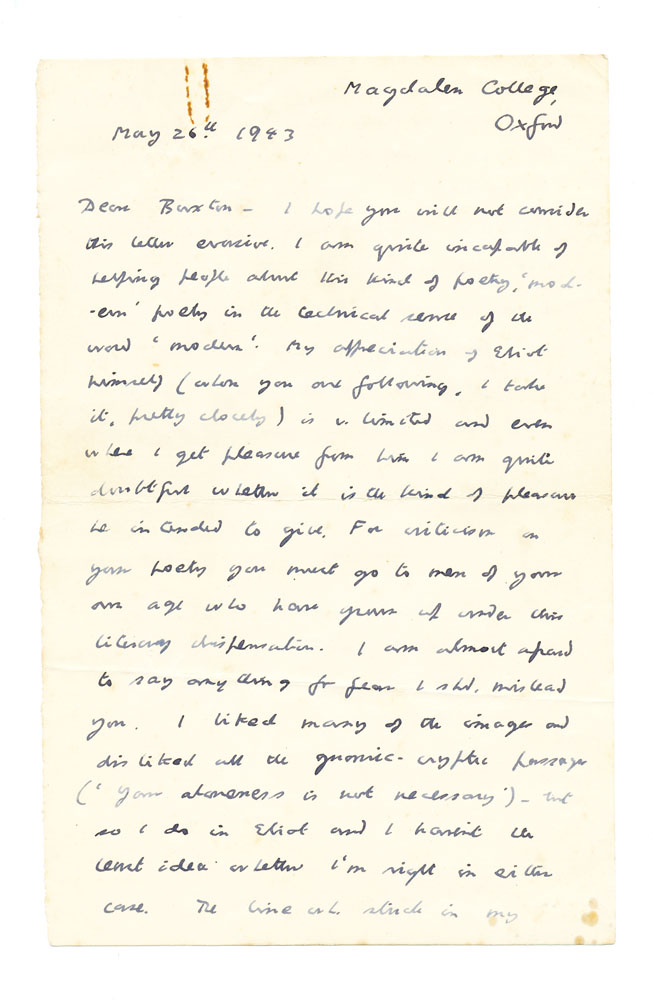 Magdalen College,
Oxford
May 26th 1943
Dear Buxton – I hope you will not consider
this letter evasive. I am quite incapable of
helping people about this kind of poetry, 'mod-
-ern' poetry in the technical sense of the
word 'modern'. My appreciation of Eliot
himself (whom you are following, I take
it, pretty closely) is v. limited and even
where I get pleasure from him I am quite
doubtful whether it is the kind of pleasure
he intended to give. For criticism on
your poetry you must go to men of your
own age who have grown up under this
literary dispensation. I am almost afraid
to say anything for fear I shd. mislead
you. I liked many of the images and
disliked all the gnomic-cryptic passages
('Your aloneness is not necessary') – but
so I do in Eliot and I haven't the
least idea whether I'm right in either
case. The line wh. stuck in my